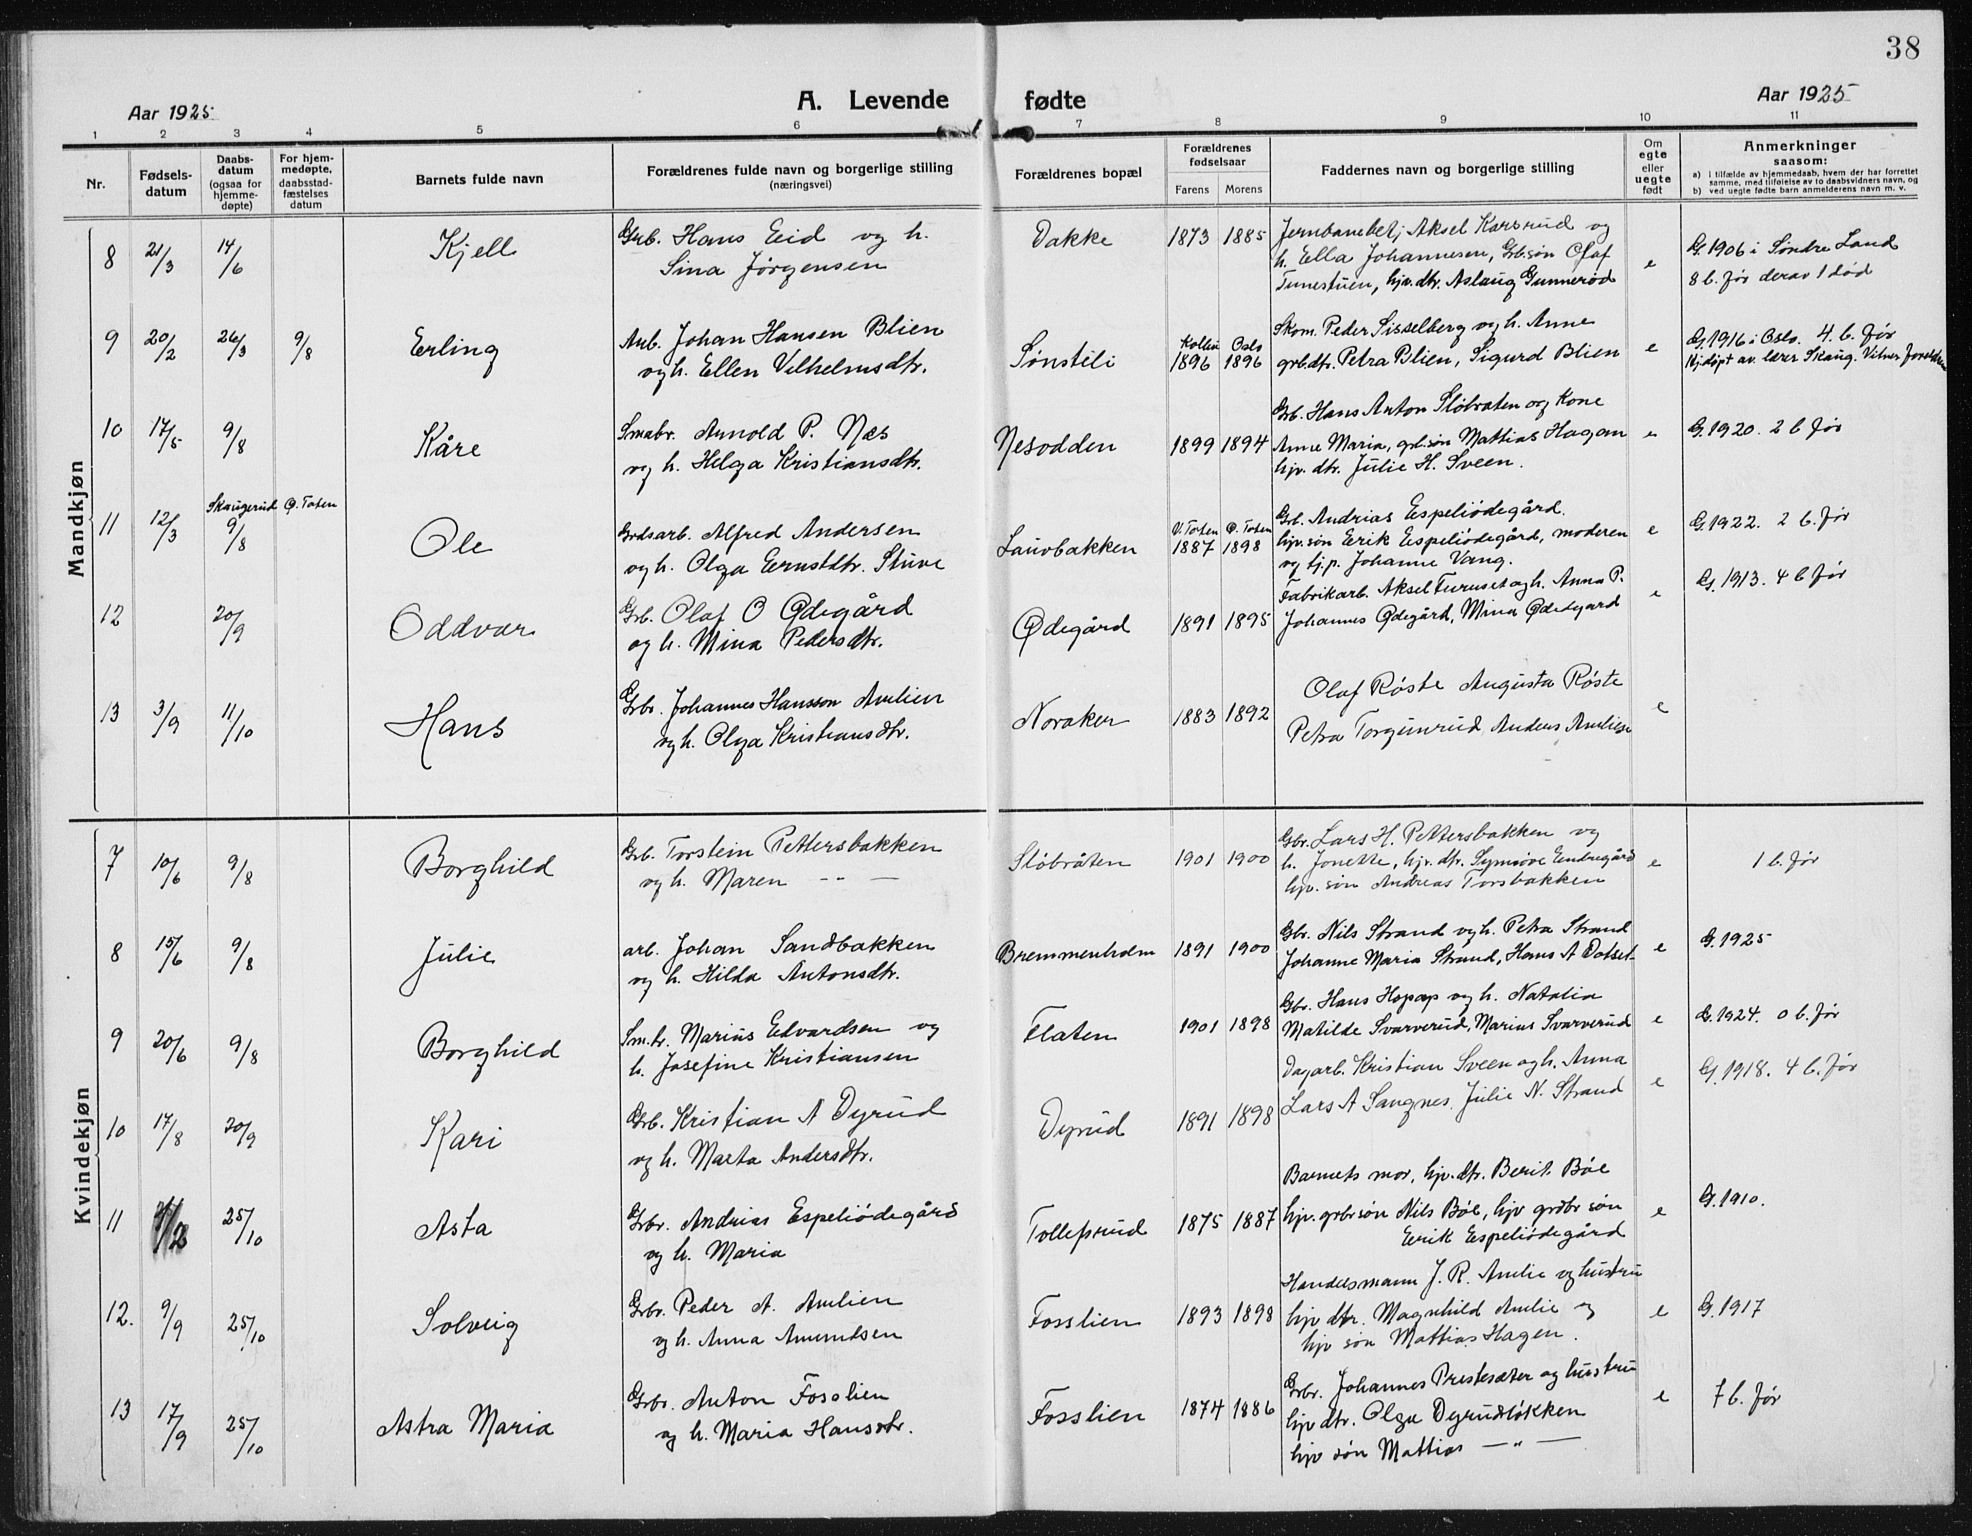 38
Aar 1925
A. Levende fødte
Aar 1925
1 2 3 4 5 6 7 8 9 10 11
Nr.
Fødsels-
datum
Daabs-
datum
(ogsaa for
hjemme-
døpte)
For hjem-
medøpte,
daabsstad-
fæstelses
datum
Barnets fulde navn
Forældrenes fulde navn og borgerlige stilling
(næringsvei)
Forældrenes bopæl
Forældrenes
fødselsaar
Farens Morens
Faddernes navn og borgerlige stilling
Om
egte
eller
uegte
født
Anmerkninger
saasom:
a) I tilfælde av hjemmedaab, hvem der har forrettet
samme, med tilføielse av to daabsvidners navn, og
b) ved uegte fødte barn anmelderens navn m. v.
Mandkjøn
8 21/3 14/6 Kjell
Grb. Hans Eid og h.
Sina Jørgensen
Dakke 1873 1885
Jernbanebetj Aksel Karsrud og
h. Ella Johannesen, Grb.søn Olaf
Tunestuen, hjv. dtr. Aslaug Gunnerød
e
G. 1906 i Søndre Land
8 b. før derav 1 død
9 20/2 26/3 9/8 Erling
Arb. Johan Hansen Blien
og h. Ellen Vilhelmsdtr.
Sønsteli
Kolbu Oslo
1896 1896
Skom. Peder Sisselberg og h. Anne
grb.dtr. Petra Blien, Sigurd Blien
e
G. 1916 i Oslo. 4 b. før
Hj.døpt av lærer Skaug. Vitner
10 17/5 9/8 Kåre
Smabr. Arnold P. Næs
og h. Helga Kristiansdtr.
Nesodden 1899 1894
Grb. Hans Anton Sløbraten og Kone
Anne Maria, grb.søn Mattias Hagan
hjv. dtr. Julie H. Sveen.
e
G. 1920. 2 b før
Skaugerud Ø. Toten
11 12/3 9/8 Ole
Grdsarb. Alfred Andersen
og h. Olga Ernstdtr. Stuve
Lauvbakken
V. Toten Ø. Toten
1887 1898
Grb. Andrias Espeliødegård.
hjv. søn Eerik Espeliødegård, moderen
og hj.p. Johanne Vang.
e
G. 1922. 2 b. før
12 20/9 Oddvar
Grb. Olaf O Ødegård
og h. Mina Pedersdtr.
Ødegård 1891 1895
Fabrikarb. Aksel Furuset og h. Anna P.
Johannes Ødegård, Mina Ødedgard
e
G. 1913. 4 b før
13 3/9 11/10 Hans
Grbr. Johannes Hansson Amlien
og h. Olga Kristiansdtr.
Noraker 1883 1892
Olaf Røste Augusta Røste
Petra Torgunrud Anders Amlien
e
Kvindekjøn
7 10/6 9/8 Borghild
Grb. Torstein Pettersbakken
og h. Maren — " —
Sløbråten 1901 1900
Gbr. Lars H. Pettersbakken og
h. Jonette, hjv. dtr. Synnøve Eendregård
hjv. søn Andreas Torsbakken
e
1 b. før
8 15/6 9/8 Julie
arb. Johan Sandbakken
og h. Hilda Antonsdtr.
Bremmenholm 1891 1900
Gbr. Nils Strand og h. Petra Strand
Johanne Maria Strand, Hans A Dotset
e
G. 1925
9 20/6 9/8 Borghild
Smbr. Marius Edvardsen og
h. Josefine Kristiansen
Flaten 1901 1898
Gbr. Hans Hopap og h. Natalia
Matilde Svarverud, Marius Svarverud
e
G. 1924. 0 b. før
10 17/8 20/9 Kari
Grb. Kristian A Dyrud
og h. Marta Andersdtr.
Dyrud 1891 1898
Dagarb. Kristian Sveen og h. Anna
Lars A Sangnes, Julie N. Strand
e
G. 1918. 4 b. før
11 25/10 Asta
Grbr. Andrias Espeliødegård
og h. Maria
Tollefsrud 1875 1887
Barnets mor, hjv. dtr. Berit Bøe
hjv. grbr søn Nils Bøe, hjv grdbr søn
Eerik Espeliødegård
e
G. 1910.
12. 9/9 25/10 Solveig
Grbr. Peder A. Amlien
og h. Anna Amundsen
Fosslien 1893 1898
Handelsmann J. R. Amlie og hustru
hjv dtr. Magnhild Amlie og
hjv søn Mattias Hagen.
e
G. 1917
13 17/9 25/10 Astra Maria
Grbr. Anton Fosslien
og h. Maria Hansdtr.
Fosslien 1874 1886
Grbr. Johannes Prestesæter og hustru
hjv dtr. Olga Dyrudløkken
hjv søn Mattias — " —
e
7 b. før